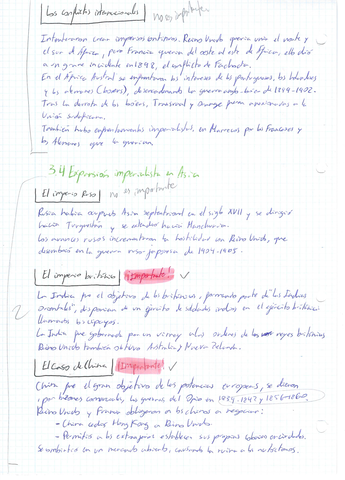 Los conflictos internacionales no es importante
Intentaron crear imperios continuos. Reino Unido quería unir el norte y
el sur de África, pero Francia quería del oeste al este de África, ello dió
a un grave incidente en 1898, el conflicto de Fachoda.
En el África Austral se enfrentaron los intereses de los portugueses, los holandeses
y los alemanes (boers), desencadenando la guerra anglo-bóer de 1899-1902.
Tras la derrota de los bóers, Transvaal y Orange fueron anexionados a la
Unión Sudafricana.
También hubo enfrentamientos imperialistas en Marruecos por los franceses y
los alemanes que la querían.
3.4 Expansión imperialista en Asia
El imperio Ruso no es importante
Rusia había ocupado Asia septentrional en el siglo XVII y se dirigió
hacia Turquestán y se extendió hacia Manchuria.
Los avances rusos incrementaron la hostilidad con Reino Unido, que
desembocó en la guerra ruso-japonesa de 1904-1905.
El imperio británico ¡Importante!
La India fue el objetivo de los británicos, formando parte de "las Indias
orientales", disponían de un ejército de soldados indios en el ejército británico
llamados los cipayos.
La India fue gobernada por un virrey a las órdenes de los reyes británicos
Reino Unido también obtuvo Australia y Nueva Zelanda.
El Caso de China ¡Importante!
China fue el gran objetivo de las potencias europeas, se dieron
por intereses comerciales, las guerras del Opio en 1839-1842 y 1856-1860.
Reino Unido y Francia obligaron a los chinos a negociar:
- China cedía Hong Kong a Reino Unido.
- Permitía a los extranjeros establecer sus propios
Se convirtió en un mercado abierto, causando la ruina a los
2